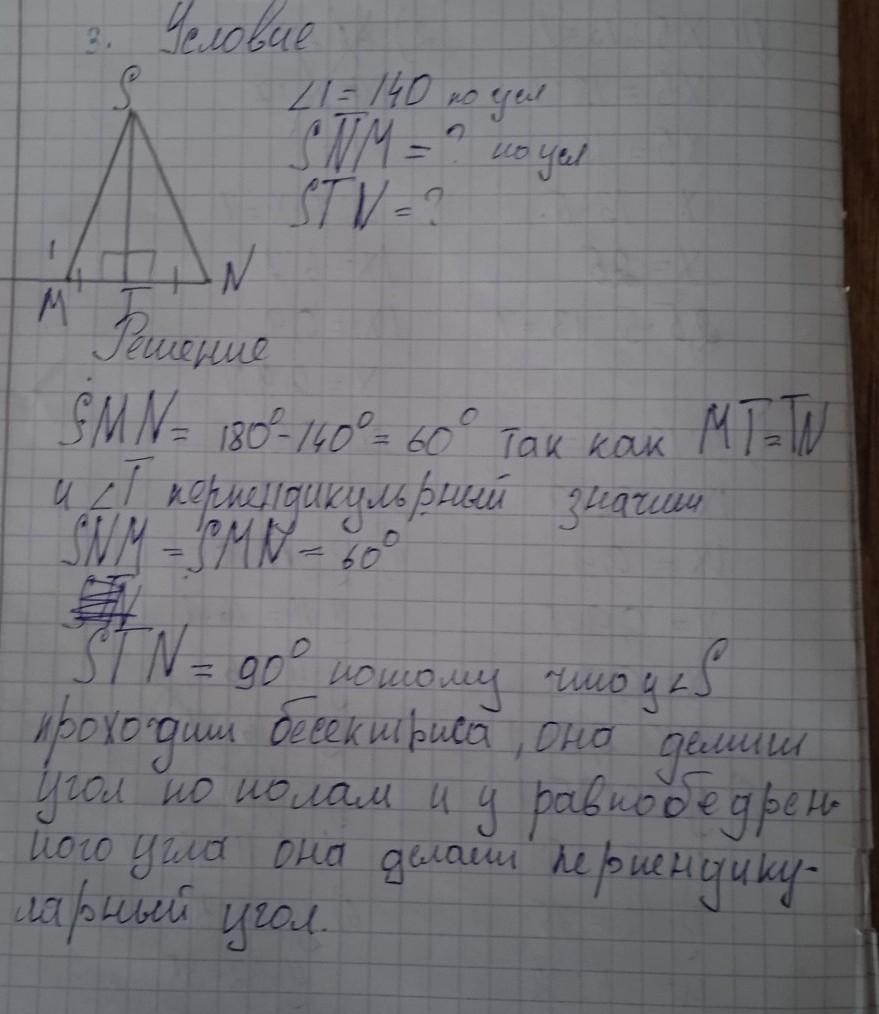 3. Условие
S
∠1 = 140 по усл
SNM = ? по усл
STN = ?
1
N
M
T
Решение
SMN = 180° - 140° = 60° так как MT = TN
и ∠T перпендикульрный значит
SNM = SMN = 60°
STN = 90° потому что у ∠S
проходит бесектриса, она делит
угол по полам и у равнобедрен-
ного угла она делает перпендику-
ларный угол.